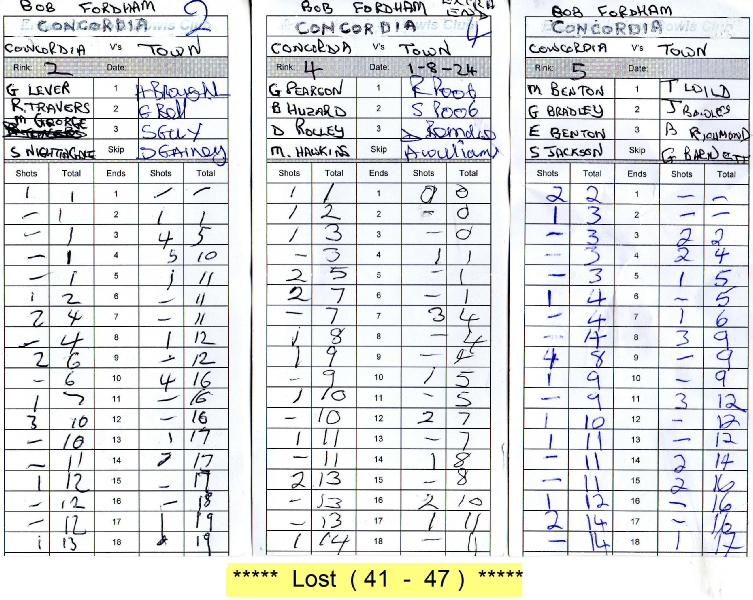 BOB FORDHAM 2
CONCORDIA
CONCORDIA V's TOWN
Rink: 2 Date:
G LEVER 1
R. TRAVERS 2 G Bell
M GEORGE 3
S NIGHTINGALE Skip
Shots Total Ends Shots Total
1 1 1 – –
– 1 2 1 1
– 1 3 4 5
– 1 4 5 10
– 1 5 1 11
1 2 6 – 11
2 4 7 – 11
– 4 8 1 12
2 6 9 – 12
– 6 10 4 16
1 7 11 – 16
3 10 12 – 16
– 10 13 1 17
– 11 14 17
1 12 15 – 17
– 12 16 – 18
– 12 17 1 19
1 13 18 19
BOB FORDHAM EXTRA END 4
CONCORDIA
CONCORDIA V's TOWN
Rink: 4 Date: 1-8-24
G PEARSON 1 R POOB
B HUZARD 2 S POOB
D ROLLEY 3
M. HAWKINS Skip A williams
Shots Total Ends Shots Total
1 1 1 0 0
1 2 2 – 0
1 3 3 – 0
– 3 4 1 1
2 5 5 – 1
2 7 6 – 1
– 7 7 3 4
1 8 8 – 4
1 9 9 – 4
– 9 10 1 5
1 10 11 – 5
– 10 12 2 7
1 11 13 – 7
– 11 14 1 8
2 13 15 – 8
– 13 16 2 10
– 13 17 1 11
1 14 18 – 11
BOB FORDHAM
CONCORDIA Bowls Club
CONCORDIA V's TOWN
Rink: 5 Date:
M BENTON 1 T WILD
G BRADLEY 2
E BENTON 3 B RICHMOND
S JACKSON Skip G BARNETT
Shots Total Ends Shots Total
2 2 1 – –
1 3 2 – –
– 3 3 2 2
– 3 4 2 4
– 3 5 1 5
1 4 6 – 5
– 4 7 1 6
– 4 8 3 9
4 8 9 – 9
1 9 10 – 9
– 9 11 3 12
1 10 12 – 12
1 11 13 – 12
– 11 14 2 14
– 11 15 2 16
1 12 16 – 16
2 14 17 – 16
– 14 18 1 17
***** Lost ( 41 - 47 ) *****